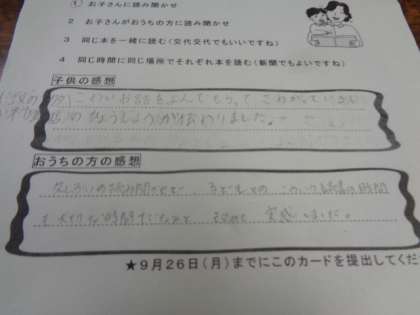 ① お子さんに読み聞かせ
2 お子さんがおうちの方に読み聞かせ
3 同じ本を一緒に読む(交代交代でもいいですね)
4 同じ時間に同じ場所でそれぞれ本を読む(新聞でもよいですね)
子供の感想
こわいお話をよんでもらって こわがっている
の ひょうじょうが伝わりました。
おうちの方の感想
久しぶりの読み聞かせで、
大切な時間だなぁと 改めて 実感しました。
★9月26日(月)までにこのカードを提出してくだ